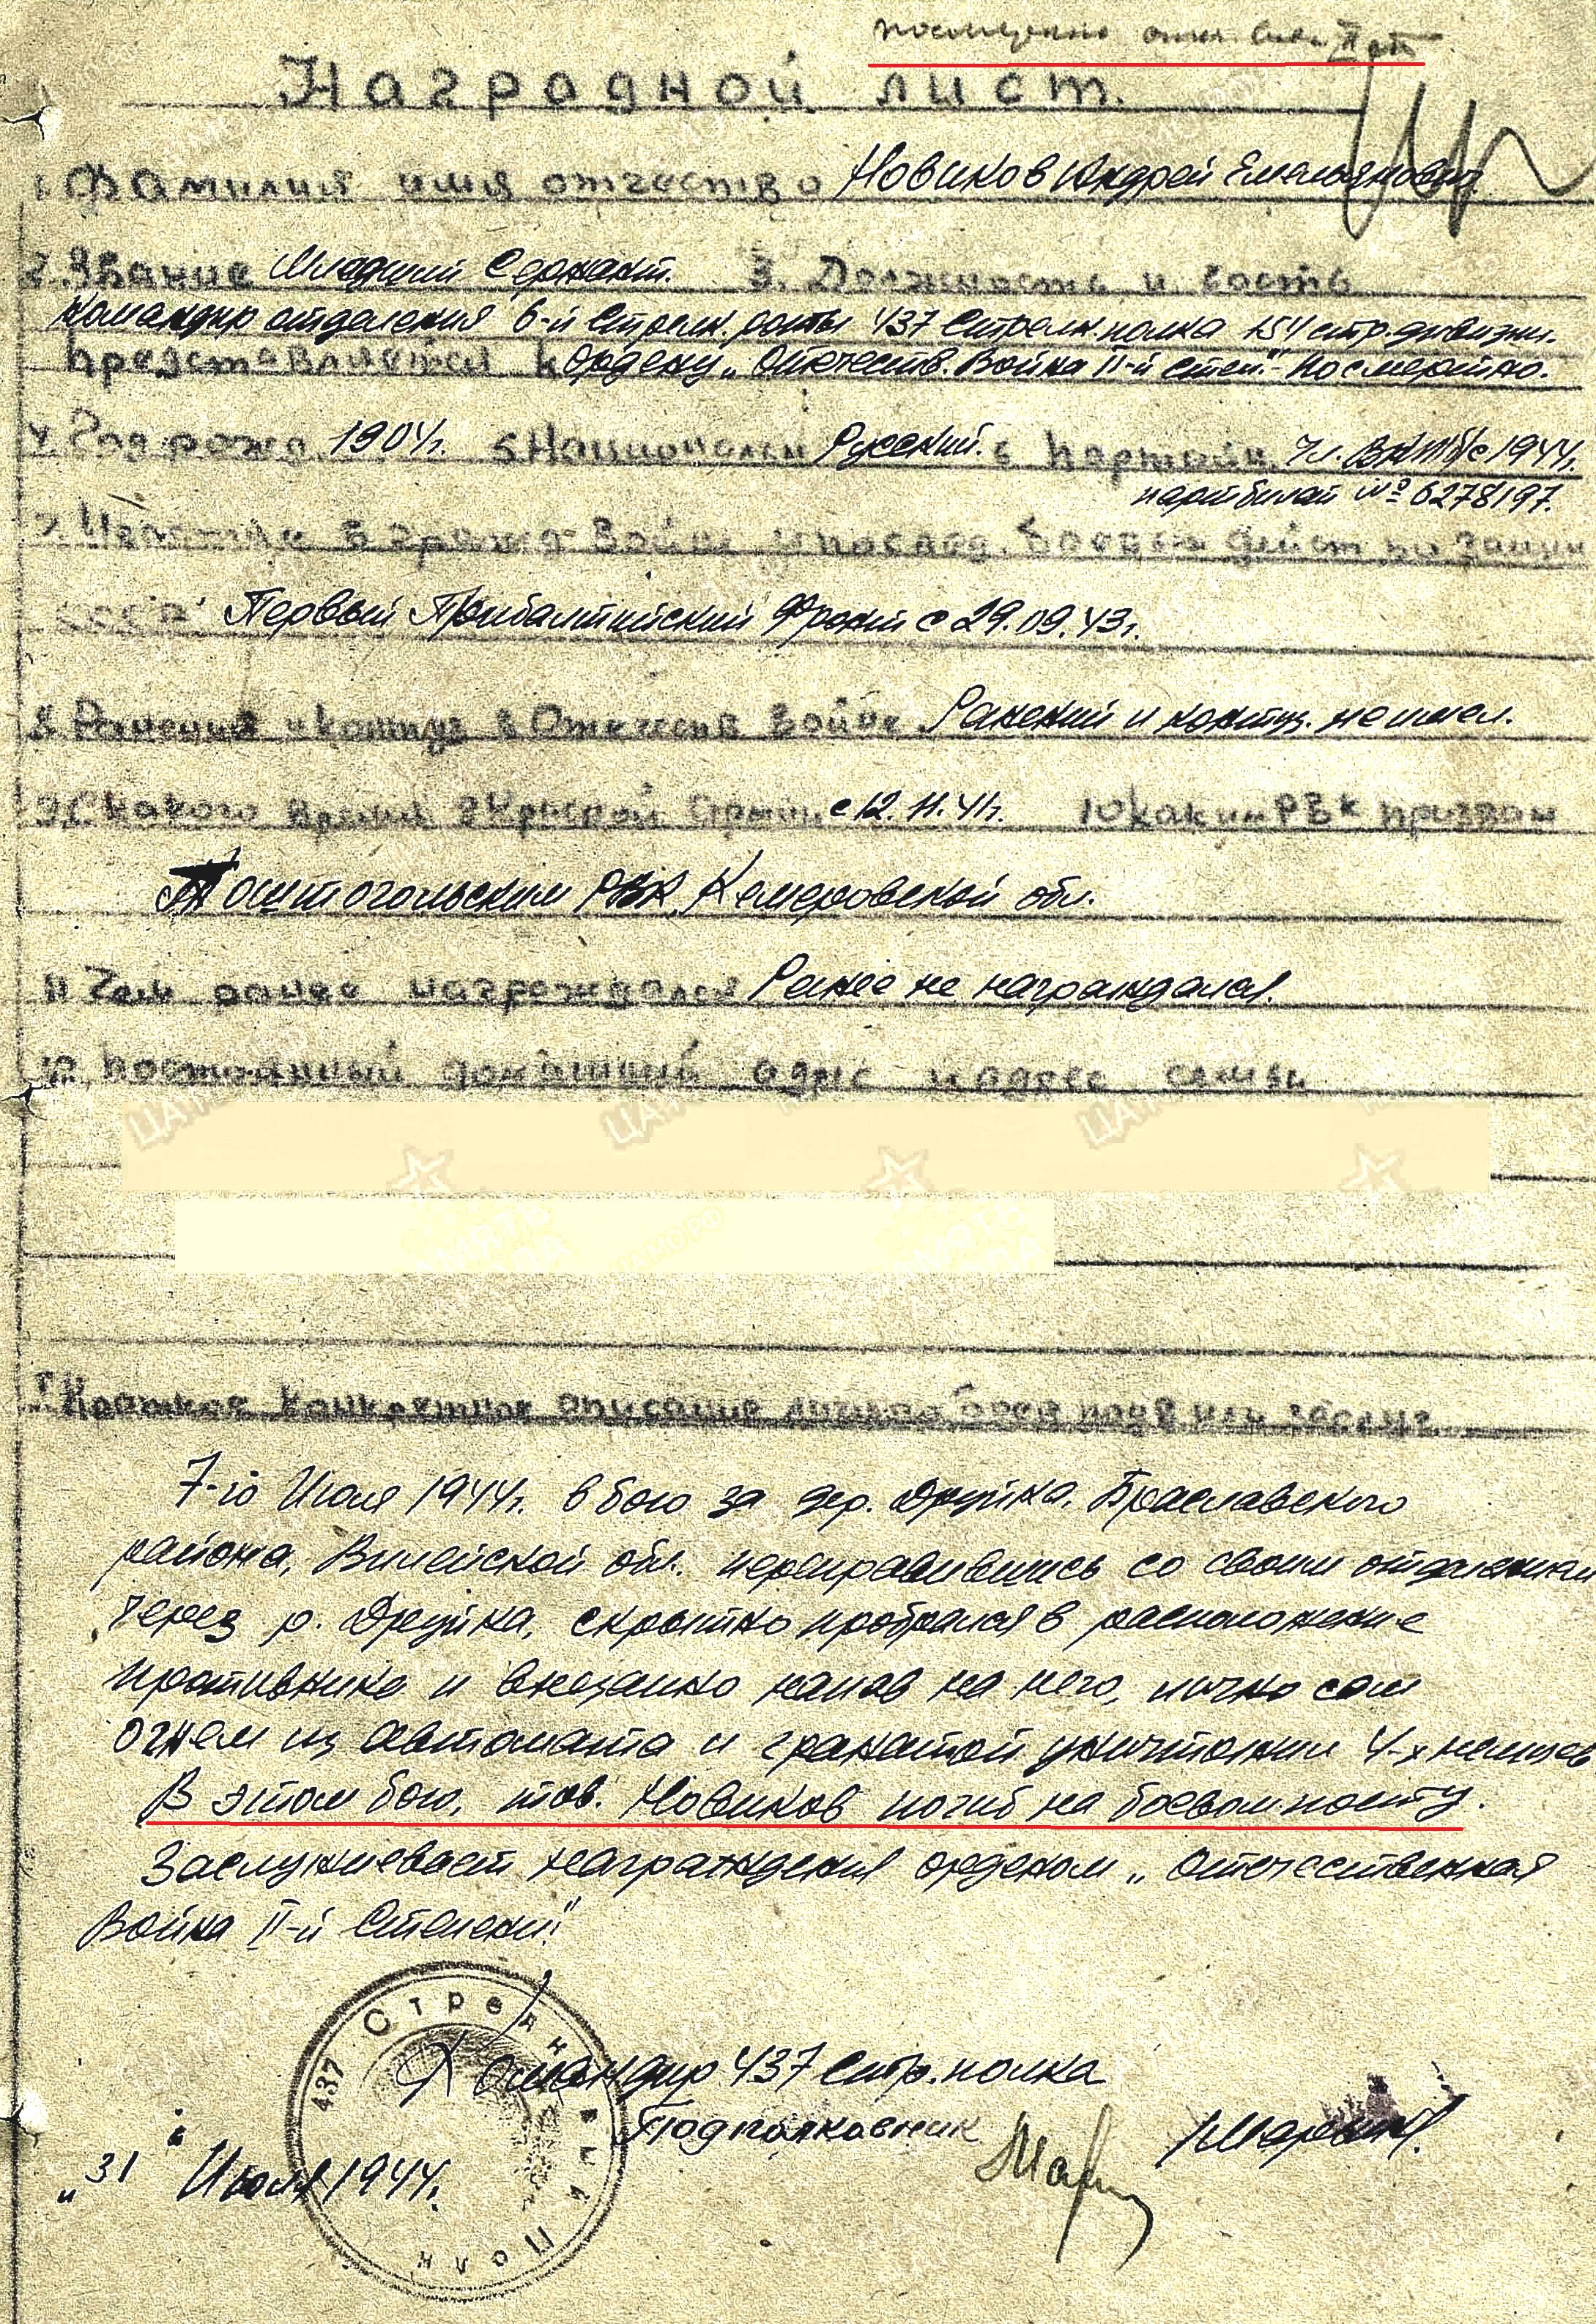 посмертно отеч. войн. II ст
Наградной лист.
1 Фамилия имя отчество Новиков Андрей Емельянович.
2. Звание Младший Сержант. 3. Должность и часть
Командир отделения 6-й Стрелк. роты 437 Стрелк. полка 154 стр. дивизии.
Представляется к Ордену „Отечеств. Война II-й степ." - Посмертно.
4. Год рожд. 1904г. 5 Национальн Русский. 6 Партийн. Чл. ВКП/б/ с 1944г.
партбилет № 6278197.
7. Участие в гражд. войне и послед. боевых дейст по защи
СССР Первый Прибалтийский Фронт с 29.09.43г.
8 Ранения и контуз в Отечеств войне. Ранений и контуз. не имел.
9 С какого времени в Красной Армии с 12.11.41г. 10 каким РВК призван
Таштагольским РВК, Кемеровской обл.
11 Чем ранее награждался Ранее не награждался.
12. Постоянный домашний адрес и адрес семьи
Краткое конкретное описание личного боев подв или заслуг
7-го Июля 1944г. в бою за дер. Друйка, Браславского
района, Вилейской обл. переправившись со своим отделением
через р. Друйка, скрытно пробрался в расположение
противника и внезапно напав на него, лично сам
огнем из автомата и гранатой уничтожил 4-х немцев
В этом бою, тов. Новиков погиб на боевом посту.
Заслуживает награждения орденом „Отечественная
Война II-й Степени"
Командир 437 Стр. полка
Подполковник
„31" Июля 1944г.
437 Стрелковый Полк